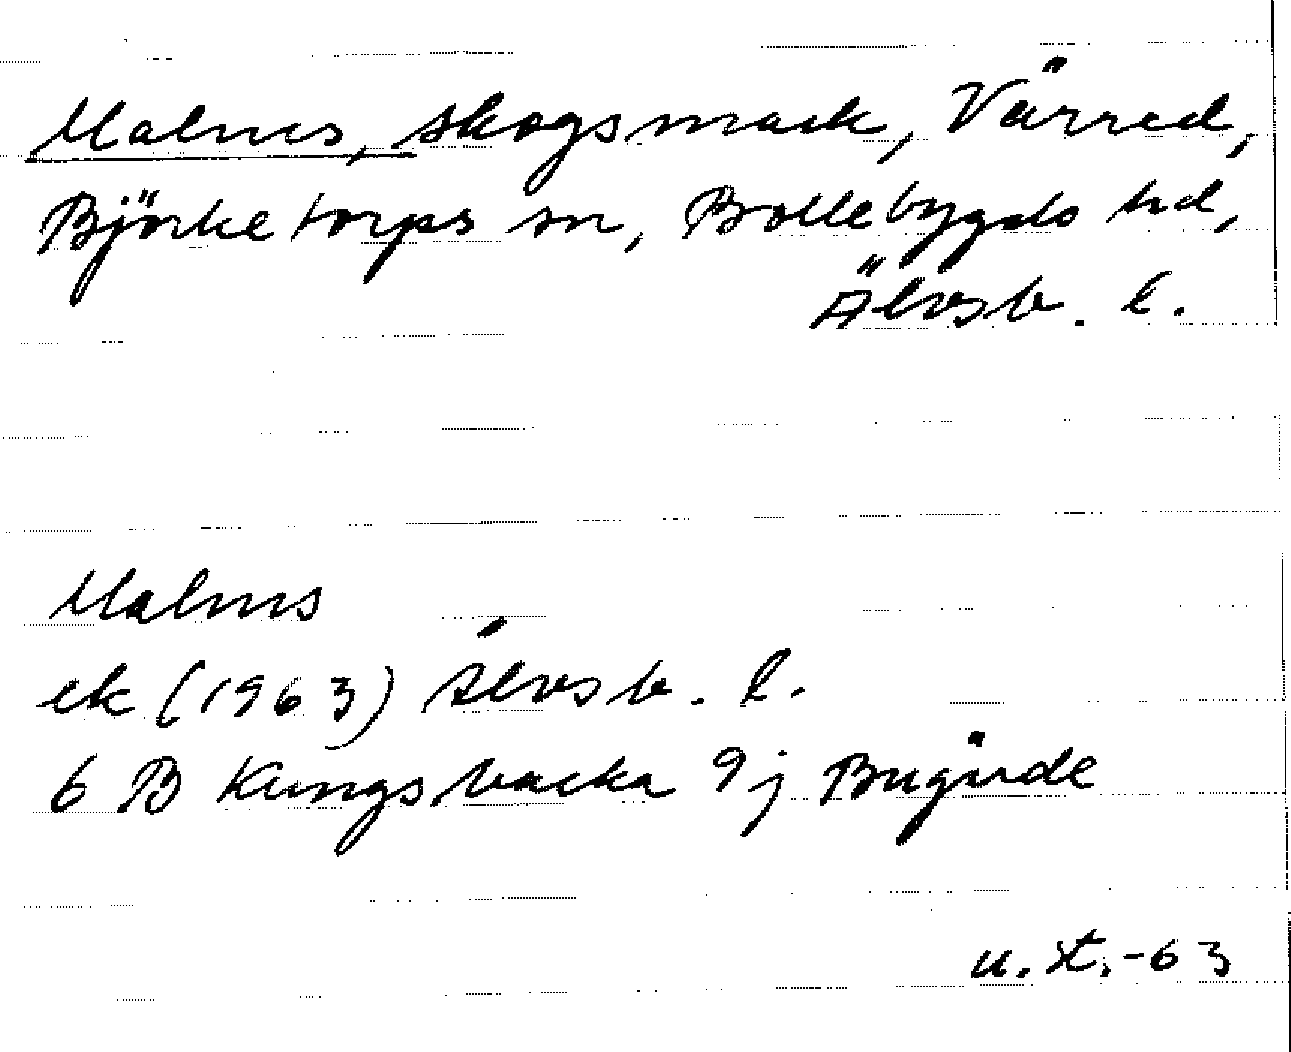 Malms, skogsmark, Värred,
Björketorps sn, Bollebygds hd,
Älvsb. l.
Malms
ek (1963) Älvsb. l.
6 B Kungsbacka 9j Bugärde
u. st. -63